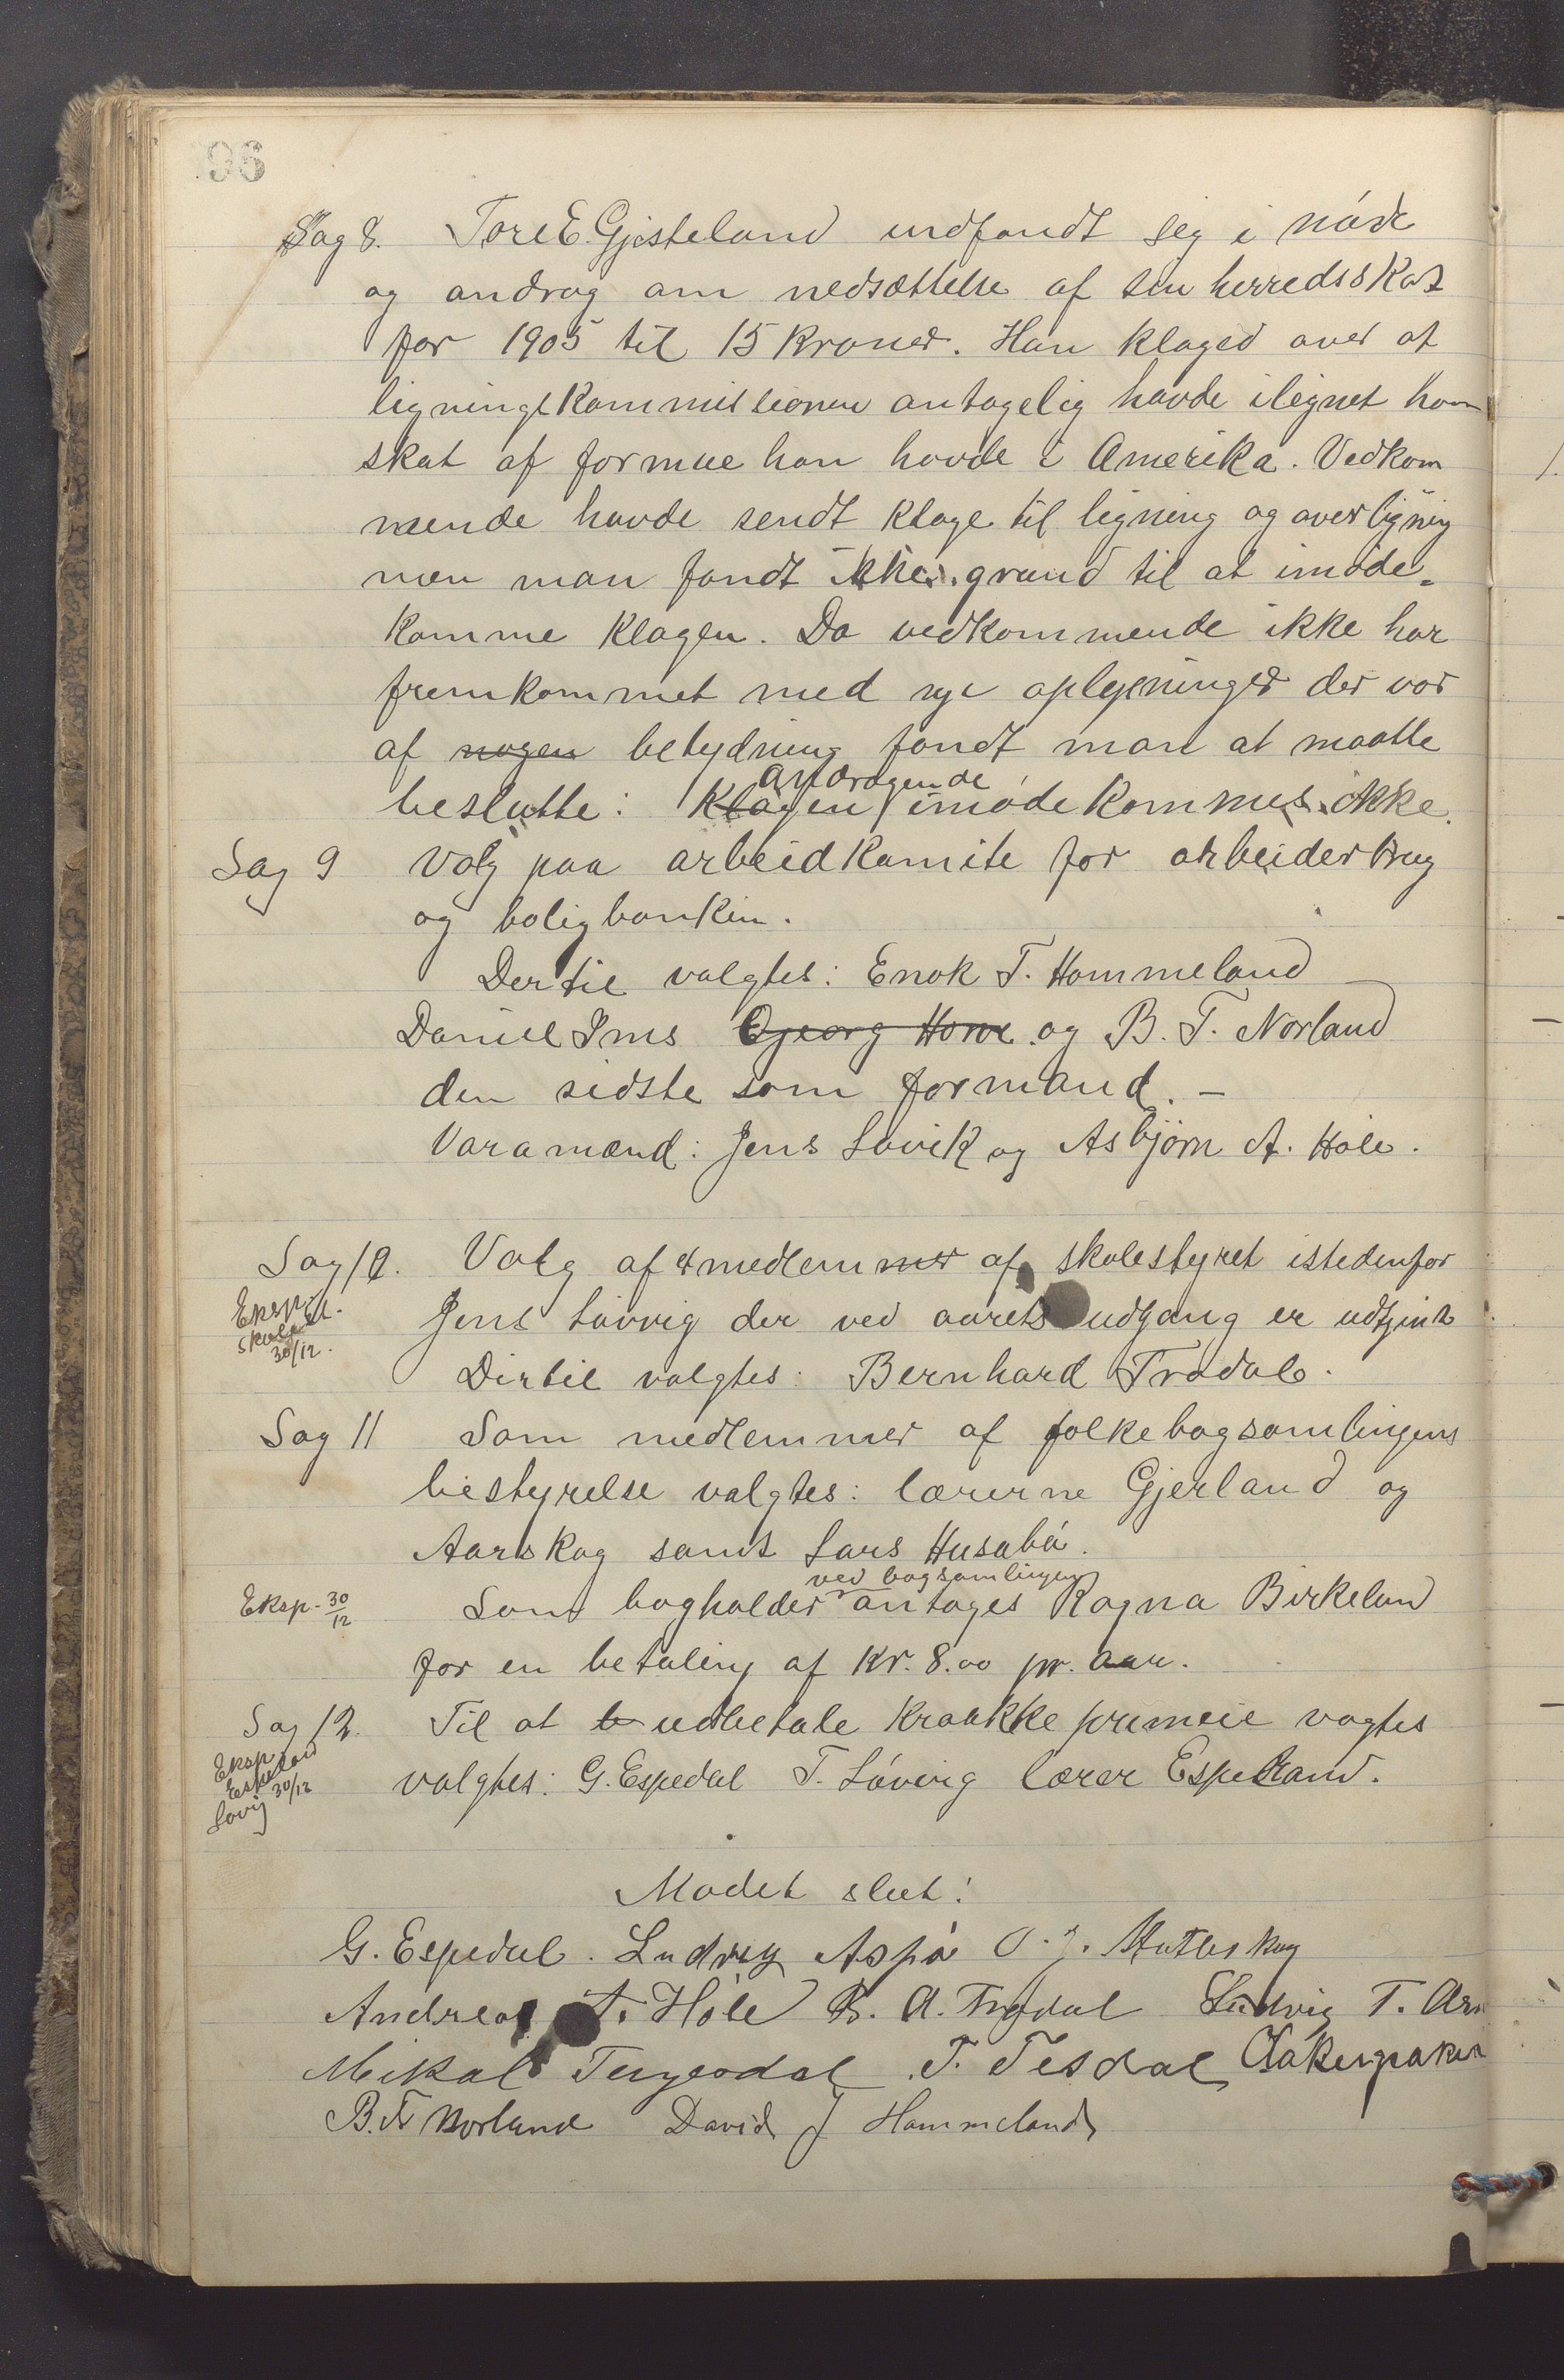 96
Sag 8. Tore E. Gjesteland indfandt sig i møde
og androg om nedsættelse af sin herredsskat
for 1905 til 15 kroner. Han klaged over at
ligningskommissionen antagelig havde ilignet ham
skat af formue han havde i Amerika. Vedkom
mende havde sendt klage til ligning og overligning
men man fandt ikke grund til at imøde-
komme klagen. Da vedkommende ikke har
fremkommet med nye oplysninger der var
af nogen betydning fandt man at maatte
andragende
beslutte: Klagen imødekommes ikke.
Sag 9 Valg paa arbeidkomite for arbeiderbrug
og boligbanken.
Dertil valgtes: Enok T. Hommeland
Daniel Ims Georg Hove og B. T. Norland
den sidste som formand. —
Varamænd: Jens Løvik og Asbjørn A. Hole.
Sag 10. Valg af et medlemmer af skolestyret istedenfor
Eksp.
Jens Løvvig der ved aarets udgang er udtjent
30/12.
Dertil valgtes: Bernhard Trødal.
Sag 11 Som medlemmer af folkebogsamlingens
bestyrelse valgtes: lærerne Gjerland og
Aarskog samt Lars Husabø.
ved bogsamlingen
Eksp. 30/12 Som bogholder antages Ragna Birkeland
for en betaling af Kr. 8.00 pr. aar.
Sag 12. Til at b udbetale kraakkepremeie vagtes
Eksp
Espeland 30/12
Løvig
valgtes: G. Espedal T. Løvvig lærer Espeland.
Mødet slut:
G. Espedal. Ludvig Aspø
Andreas A. Hole B. A. Trødal Ludvig T.
Mikal T. Tesdal
B. T. Norland David J Hommeland